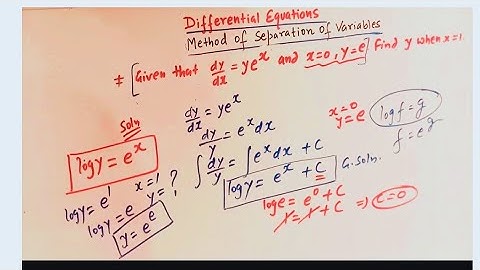 Differential Equations
Method of Separation of Variables
# [Given that dy/dx = ye^x and x=0, y=e] Find y when x=1.
dy/dx = ye^x
dy/y = e^x dx
∫ dy/y = ∫ e^x dx + C
log y = e^x + C G. Soln.
x=0
y=e
log e = e^0 + C
1 = 1 + C ⇒ C=0
log f = g
f = e^g
Soln
log y = e^x
log y = e^1 x=1
log y = e y= ?
y = e^e